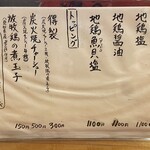 地鶏塩
1100円
地鶏醤油
1100円
地鶏魚貝塩
1100円
トッピング
得製
300円
炭火焼チャーシュー
500円
放牧鶏の煮玉子
150円